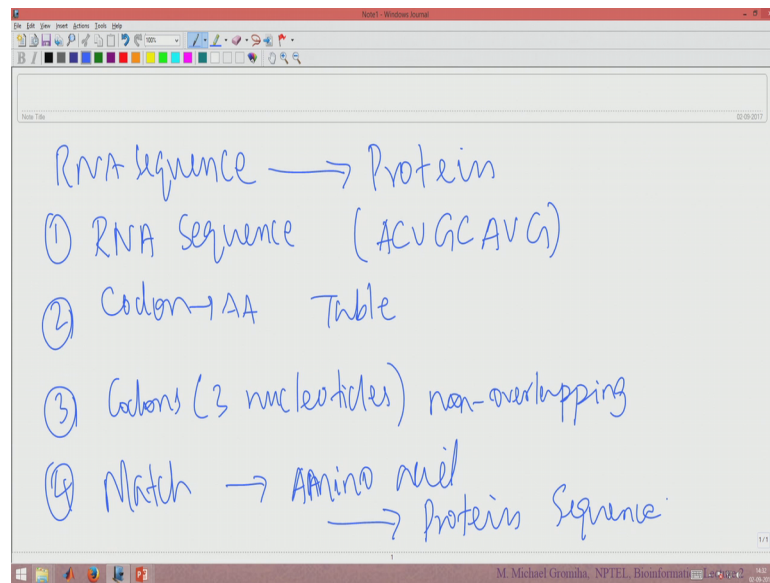 Note1 - Windows Journal
File Edit View Insert Actions Tools Help
100%
B I
Note Title
02-09-2017
RNA Sequence → Protein
① RNA Sequence (ACUGCAUG)
② Codon → AA Table
③ Codons (3 nucleotides) non-overlapping
④ Match → Amino acid
→ Protein Sequence
1/1
1
M. Michael Gromiha, NPTEL, Bioinformatics, Lecture 2
14:32